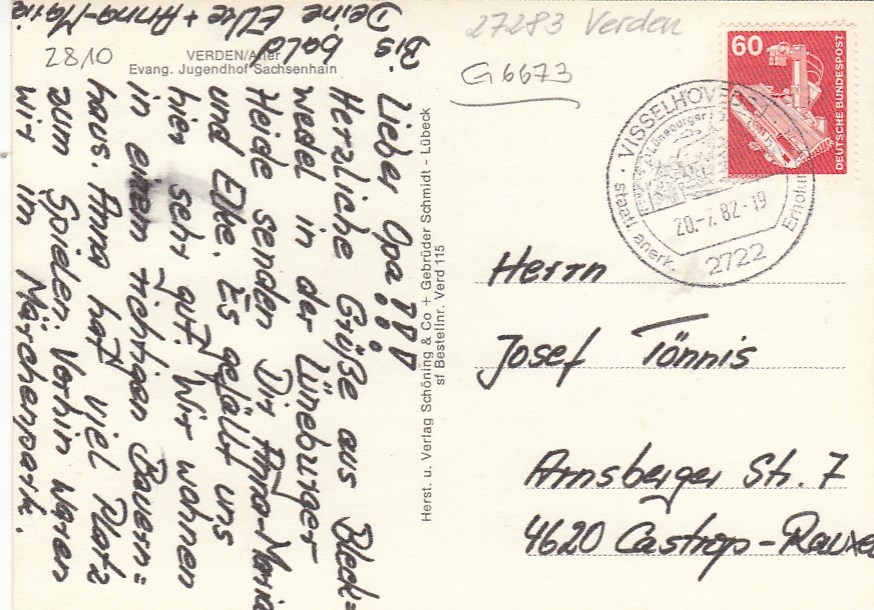 27283 Verden
2810
G 6673
VERDEN/Aller
Evang. Jugendhof Sachsenhain
60
DEUTSCHE BUNDESPOST
VISSELHÖVEDE
Lüneburger
20.-7.82-19
2722
staatl. anerk.
Lieber Opa!!!
Herzliche Grüße aus Bleck=
wedel in der Lüneburger
Heide senden Dir Anna-Maria
und Elke. Es gefällt uns
hier sehr gut. Wir wohnen
in einem richtigen Bauern=
haus. Anna hat viel Platz
zum Spielen. Vorhin waren
wir im Märchenpark.
Bis bald
Deine Elke + Anna-Maria
Herst. u. Verlag Schöning & Co + Gebrüder Schmidt - Lübeck
sf Bestellnr. Verd 115
Herrn
Josef Tönnis
Arnsberger Str. 7
4620 Castrop-Rauxel